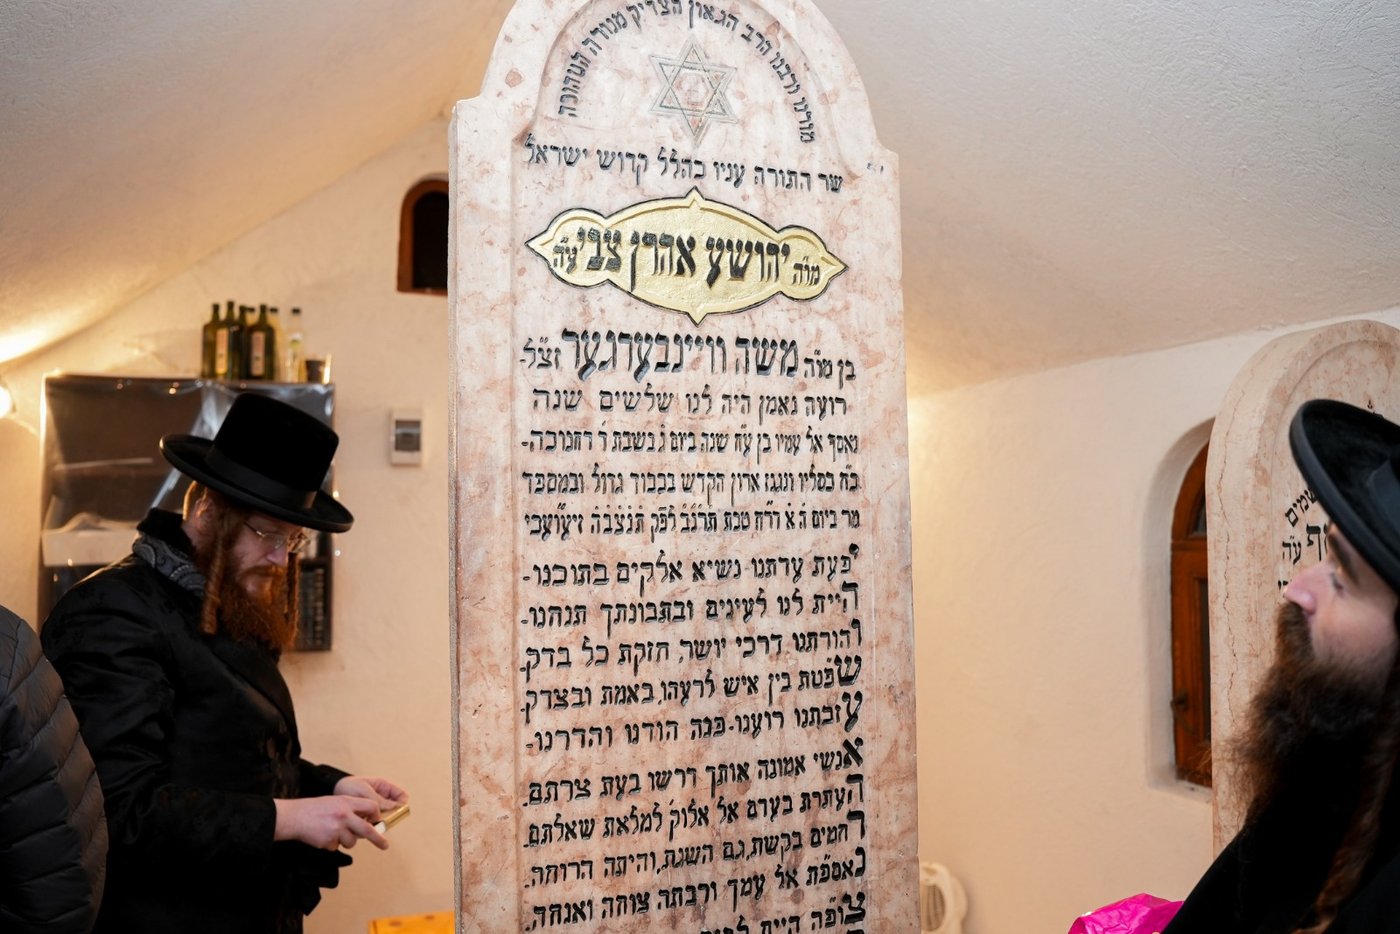 מורנו ורבנו הרב הגאון הצדיק מנורה הטהורה
שר התורה עניו כהלל קדוש ישראל
מו"ה יהושע אהרן צבי ע"ה
בן מו"ה משה וויינבערגער זצ"ל-
רועה נאמן היה לנו שלשים שנה
נאסף אל עמיו בן ע"ח שנה ביום ג' בשבת ו' דחנוכה-
כ"ח כסליו ונגנז ארון הקדש בכבוד גדול ובמספד
מר ביום ה' א' דר"ח טבת תרנ"ב לפ"ק תנצבה זיעועכי
יפעת עדתנו נשיא אלקים בתוכנו-
היית לנו לעינים ובתבונתך תנחנו-
והורתנו דרכי יושר, חזקת כל בדק.
שפטת בין איש לרעהו, באמת ובצדק.
עזבתנו רוענו- פנה הודנו והדרנו-
אנשי אמונה אותך דרשו בעת צרתם.
העתרת בעדם אל אלוק' למלאת שאלתם.
רחמים בקשת, גם השגת, והיתה הרוחה.
נאספת אל עמך ורבתה צוחה ואנחה.
צופה היית לבית
שמים
ע"ה